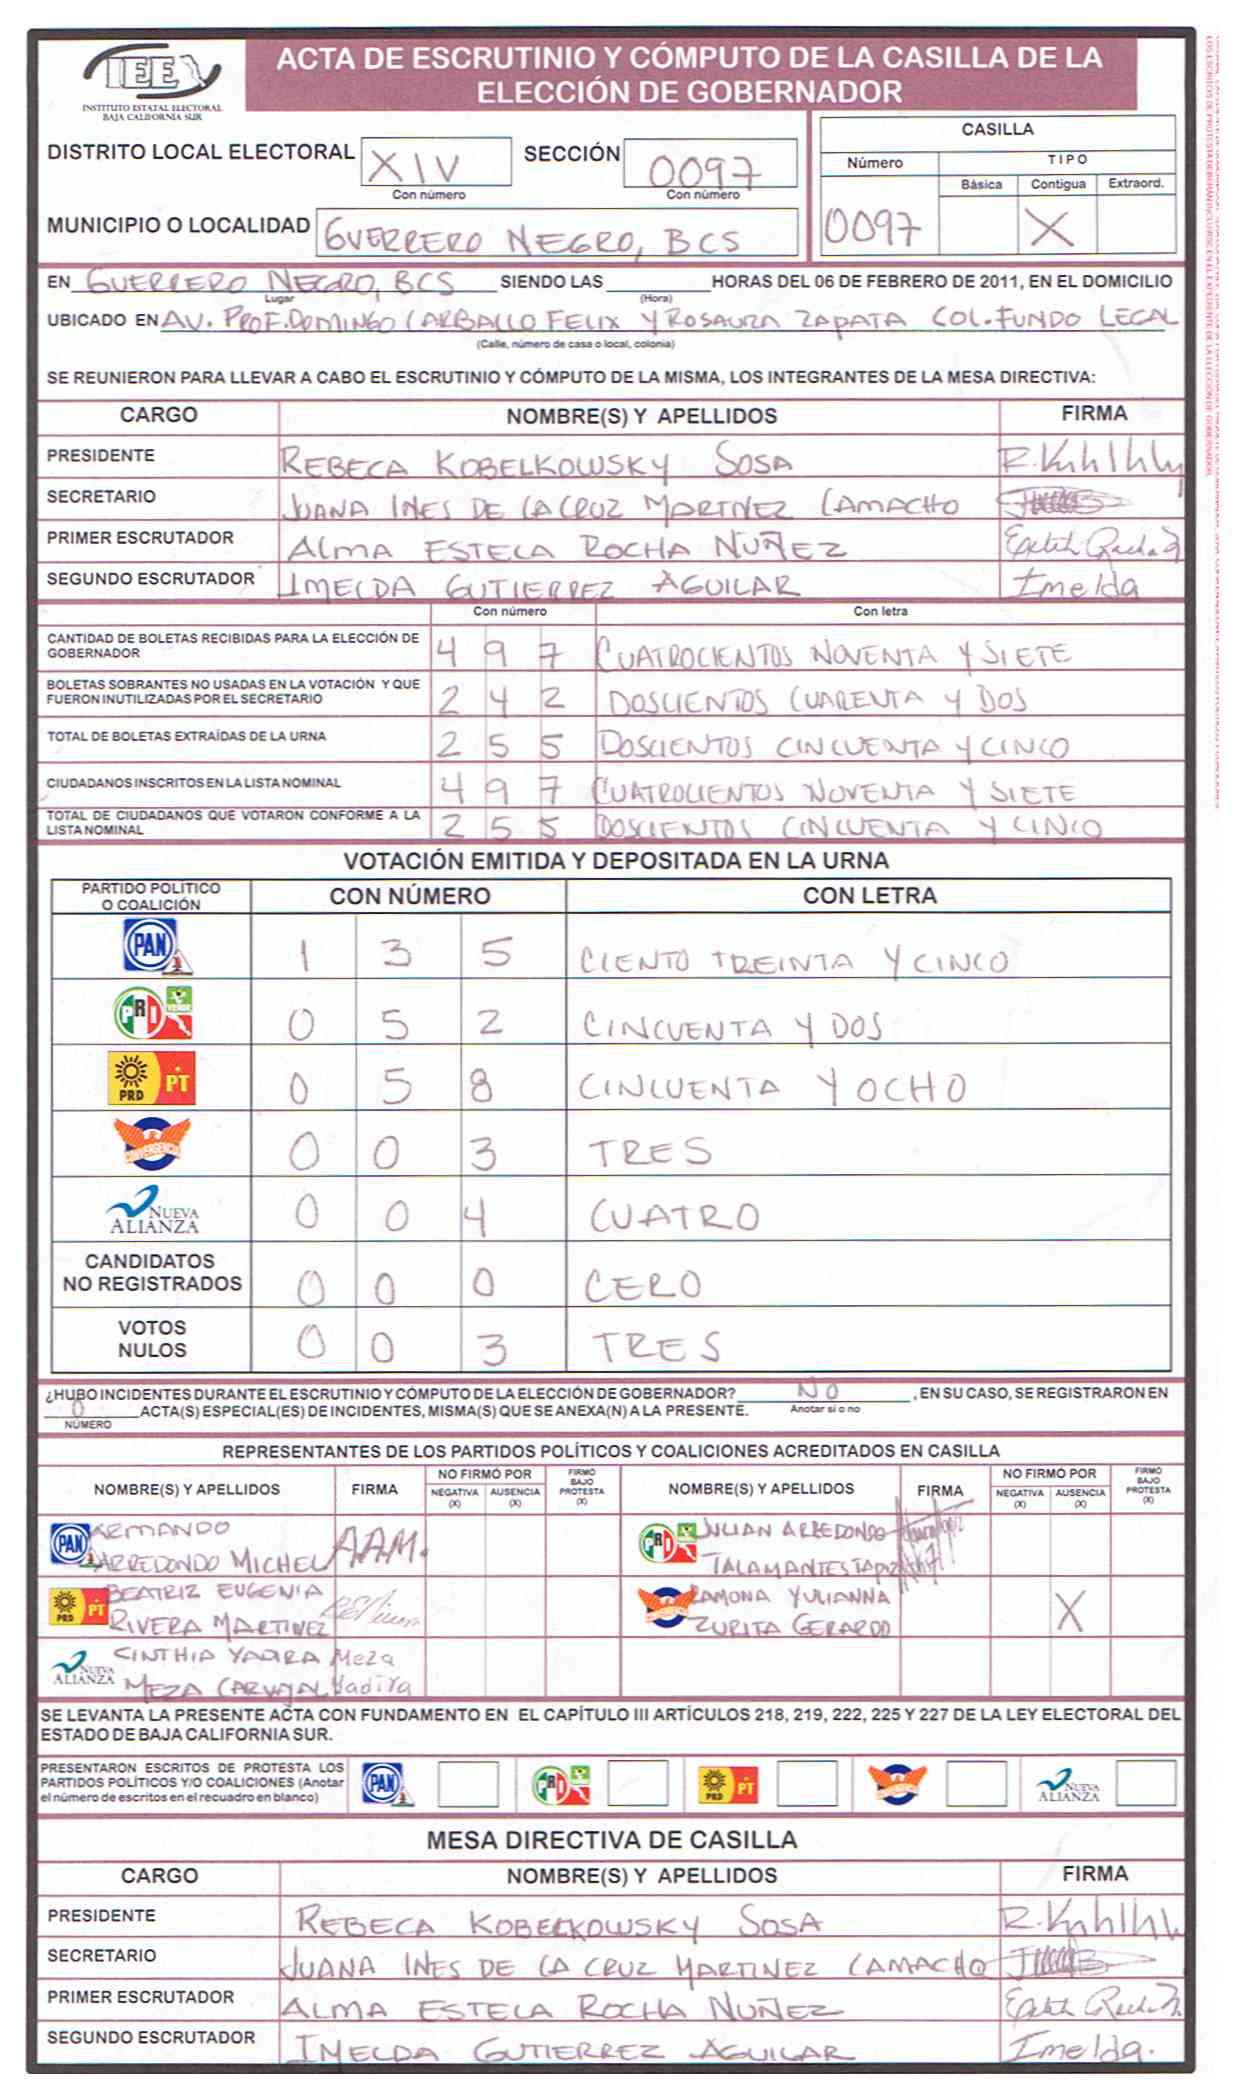 IEE
INSTITUTO ESTATAL ELECTORAL
BAJA CALIFORNIA SUR
ACTA DE ESCRUTINIO Y CÓMPUTO DE LA CASILLA DE LA
ELECCIÓN DE GOBERNADOR
DISTRITO LOCAL ELECTORAL XIV SECCIÓN 0097
Con número Con número
MUNICIPIO O LOCALIDAD GUERRERO NEGRO, BCS
CASILLA
Número TIPO
Básica Contigua Extraord.
0097 X
EN GUERRERO NEGRO, BCS SIENDO LAS HORAS DEL 06 DE FEBRERO DE 2011, EN EL DOMICILIO
Lugar (Hora)
UBICADO EN AV. PROF. DOMINGO CARBALLO FELIX Y ROSAURA ZAPATA COL. FUNDO LEGAL
(Calle, número de casa o local, colonia)
SE REUNIERON PARA LLEVAR A CABO EL ESCRUTINIO Y CÓMPUTO DE LA MISMA, LOS INTEGRANTES DE LA MESA DIRECTIVA:
CARGO NOMBRE(S) Y APELLIDOS FIRMA
PRESIDENTE REBECA KOBELKOWSKY SOSA
SECRETARIO JUANA INES DE LA CRUZ MARTINEZ CAMACHO
PRIMER ESCRUTADOR ALMA ESTELA ROCHA NUÑEZ
SEGUNDO ESCRUTADOR IMELDA GUTIERREZ AGUILAR Imelda
Con número Con letra
CANTIDAD DE BOLETAS RECIBIDAS PARA LA ELECCIÓN DE
GOBERNADOR 4 9 7 CUATROCIENTOS NOVENTA Y SIETE
BOLETAS SOBRANTES NO USADAS EN LA VOTACIÓN Y QUE
FUERON INUTILIZADAS POR EL SECRETARIO 2 4 2 DOSCIENTOS CUARENTA Y DOS
TOTAL DE BOLETAS EXTRAÍDAS DE LA URNA 2 5 5 DOSCIENTOS CINCUENTA Y CINCO
CIUDADANOS INSCRITOS EN LA LISTA NOMINAL 4 9 7 CUATROCIENTOS NOVENTA Y SIETE
TOTAL DE CIUDADANOS QUE VOTARON CONFORME A LA
LISTA NOMINAL 2 5 5 DOSCIENTOS CINCUENTA Y CINCO
VOTACIÓN EMITIDA Y DEPOSITADA EN LA URNA
PARTIDO POLÍTICO
O COALICIÓN CON NÚMERO CON LETRA
PAN 1 3 5 CIENTO TREINTA Y CINCO
PRI VERDE 0 5 2 CINCUENTA Y DOS
PRD PT 0 5 8 CINCUENTA Y OCHO
CONVERGENCIA 0 0 3 TRES
NUEVA ALIANZA 0 0 4 CUATRO
CANDIDATOS
NO REGISTRADOS 0 0 0 CERO
VOTOS
NULOS 0 0 3 TRES
¿HUBO INCIDENTES DURANTE EL ESCRUTINIO Y CÓMPUTO DE LA ELECCIÓN DE GOBERNADOR? NO , EN SU CASO, SE REGISTRARON EN
0 ACTA(S) ESPECIAL(ES) DE INCIDENTES, MISMA(S) QUE SE ANEXA(N) A LA PRESENTE. Anotar sí o no
NÚMERO
REPRESENTANTES DE LOS PARTIDOS POLÍTICOS Y COALICIONES ACREDITADOS EN CASILLA
NOMBRE(S) Y APELLIDOS FIRMA NO FIRMÓ POR NEGATIVA (X) AUSENCIA (X) FIRMÓ BAJO PROTESTA (X) NOMBRE(S) Y APELLIDOS FIRMA NO FIRMÓ POR NEGATIVA (X) AUSENCIA (X) FIRMÓ BAJO PROTESTA (X)
PAN ARMANDO PRI JULIAN ARREDONDO
ARREDONDO MICHEL A.A.M. TALAMANTES
PRD PT BEATRIZ EUGENIA RAMONA YULIANNA
RIVERA MARTINEZ ZURITA GERARDO X
NUEVA ALIANZA CINTHIA YADIRA Meza
MEZA CARVAJAL Yadira
SE LEVANTA LA PRESENTE ACTA CON FUNDAMENTO EN EL CAPÍTULO III ARTÍCULOS 218, 219, 222, 225 Y 227 DE LA LEY ELECTORAL DEL
ESTADO DE BAJA CALIFORNIA SUR.
PRESENTARON ESCRITOS DE PROTESTA LOS
PARTIDOS POLÍTICOS Y/O COALICIONES (Anotar
el número de escritos en el recuadro en blanco) PAN PRI PRD PT NUEVA ALIANZA
MESA DIRECTIVA DE CASILLA
CARGO NOMBRE(S) Y APELLIDOS FIRMA
PRESIDENTE REBECA KOBELKOWSKY SOSA
SECRETARIO JUANA INES DE LA CRUZ MARTINEZ CAMACHO
PRIMER ESCRUTADOR ALMA ESTELA ROCHA NUÑEZ
SEGUNDO ESCRUTADOR IMELDA GUTIERREZ AGUILAR Imelda.